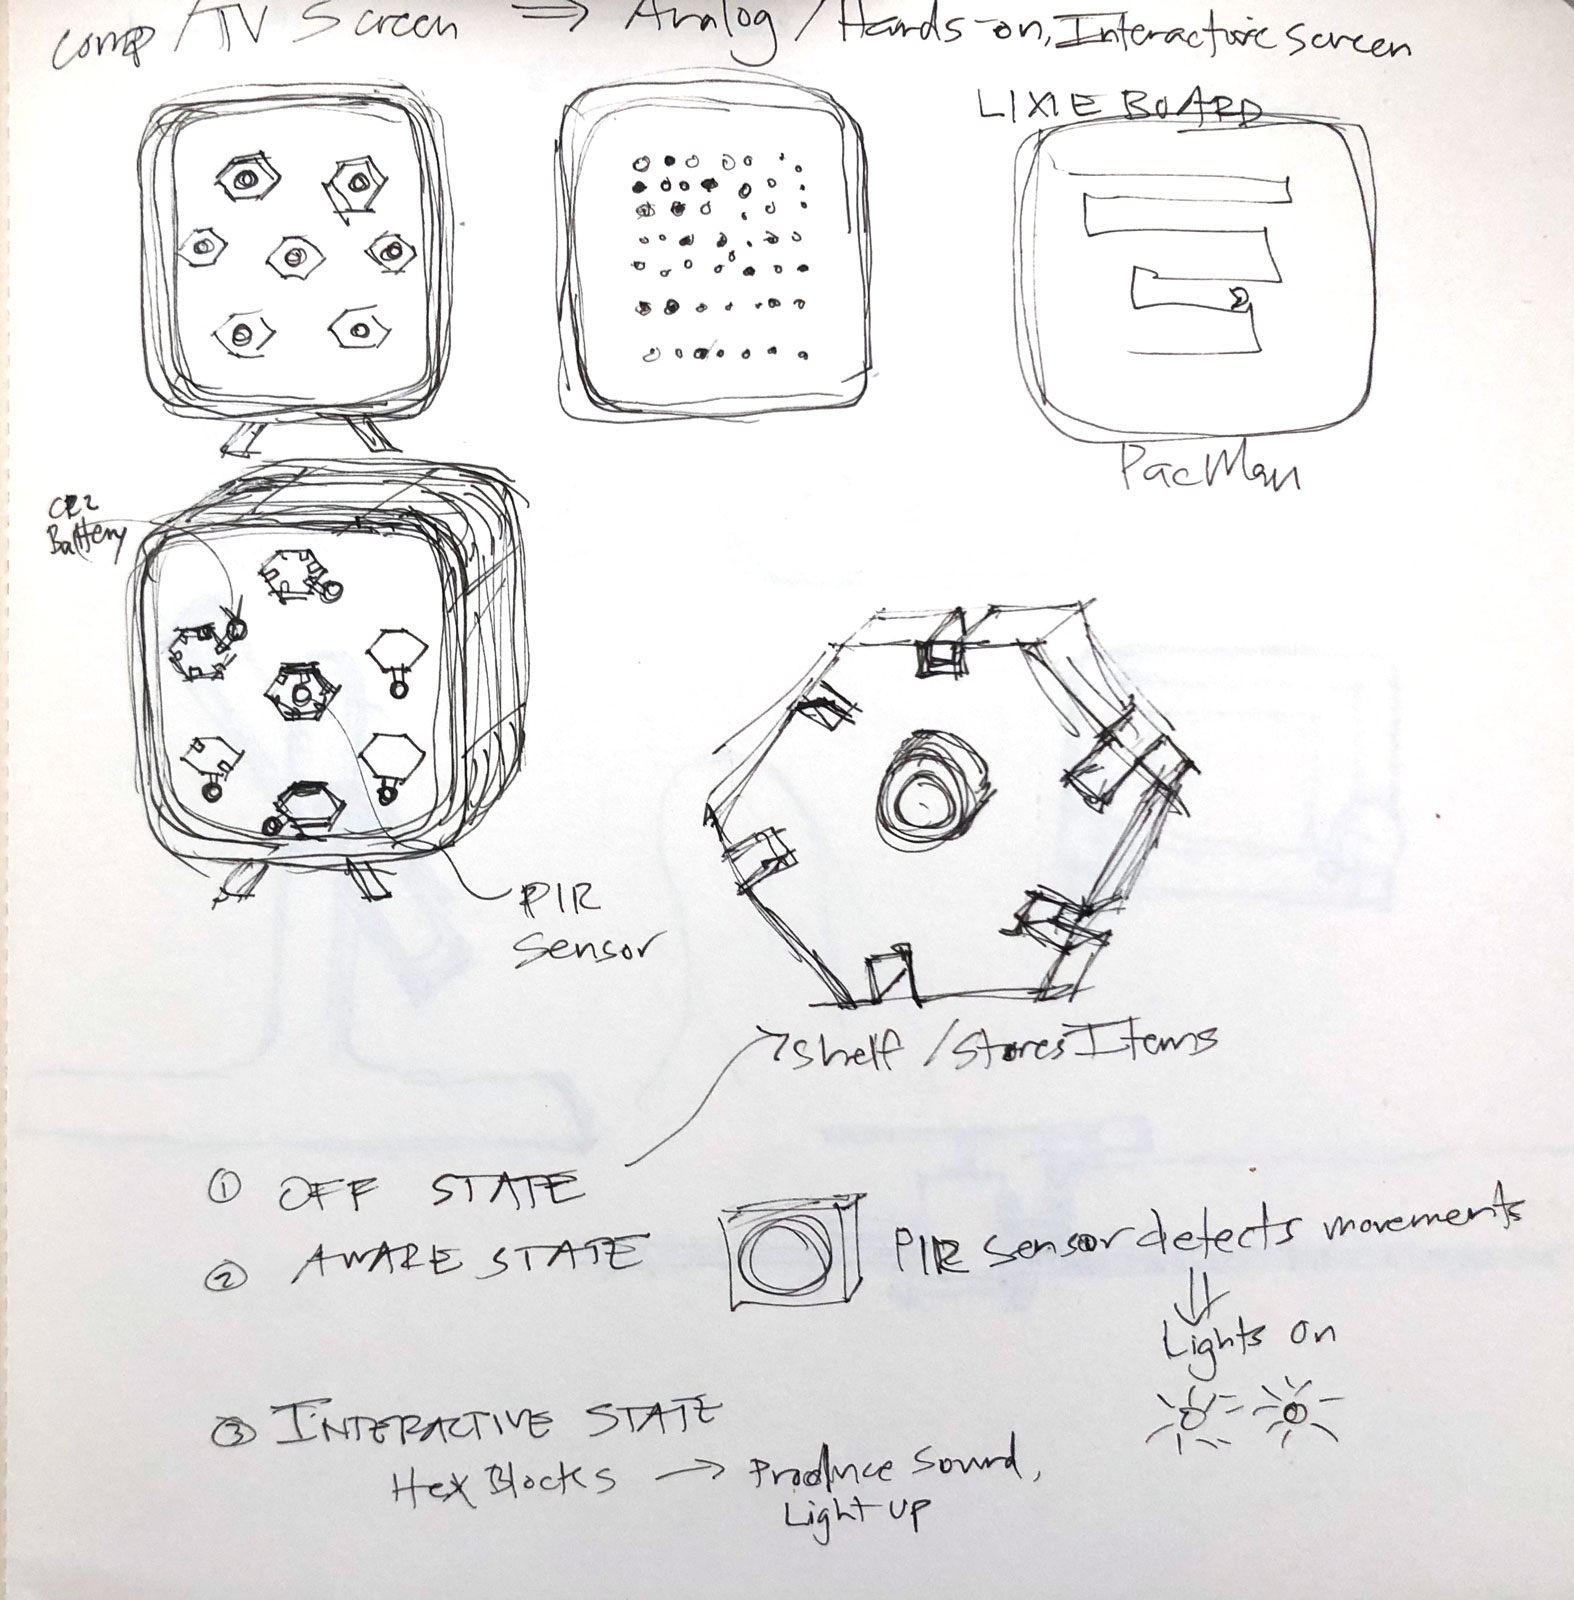 comp/TV Screen ⇒ Analog/Hands-on, Interactive screen
LIXIE BOARD
PacMan
CR2
Battery
PIR
Sensor
Shelf/Stores Items
① OFF STATE
② AWARE STATE
PIR Sensor detects movements
Lights on
③ INTERACTIVE STATE
Hex Blocks → Produce Sound,
Light up